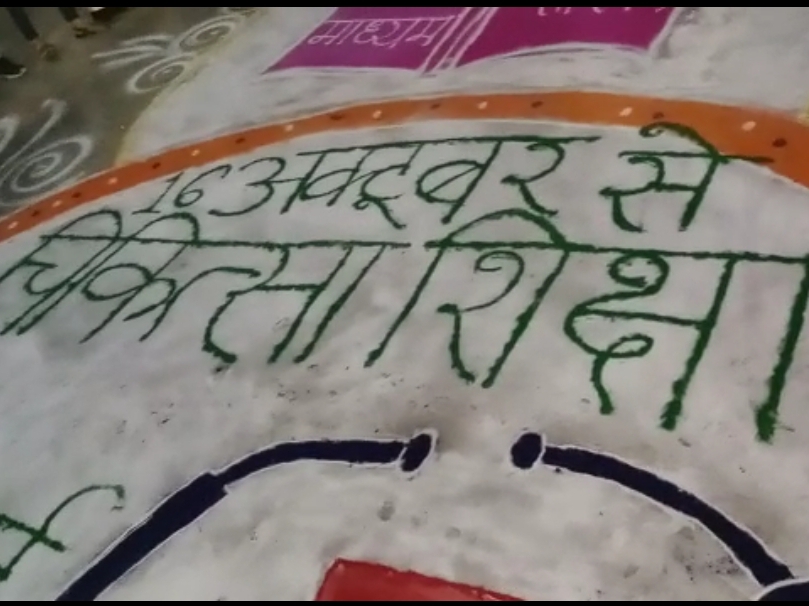 माध्यम
16 अक्टूबर से
चिकित्सा शिक्षा